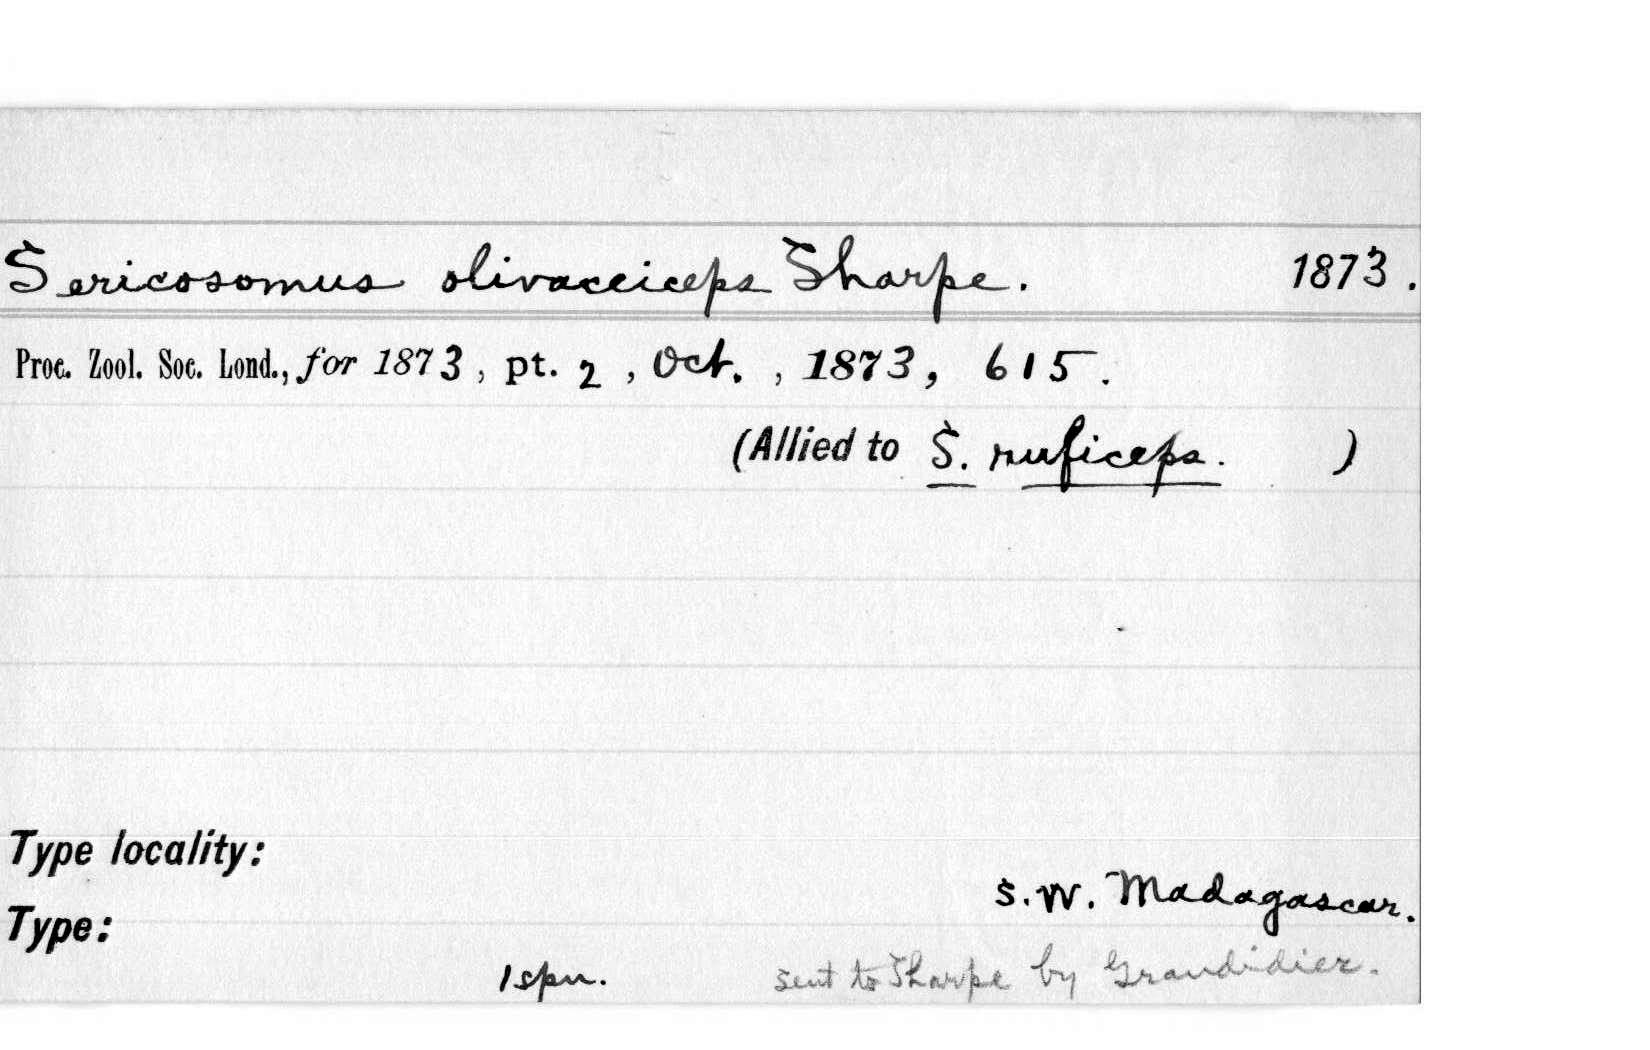 Sericosomus olivaceiceps Sharpe. 1873.
Proc. Zool. Soc. Lond., for 1873, pt. 2, Oct., 1873, 615.
(Allied to S. ruficeps. )
Type locality:
S.W. Madagascar.
Type:
1 spn. sent to Sharpe by Grandidier.